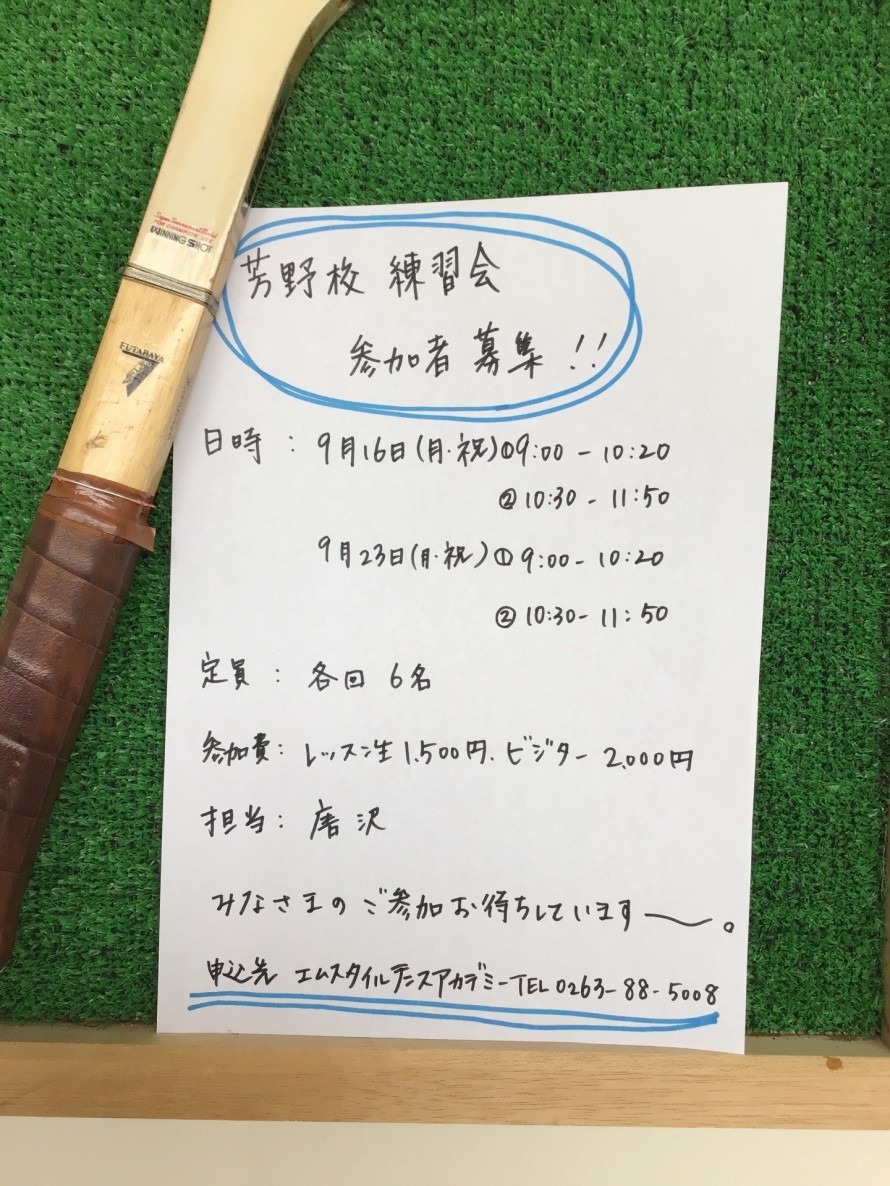 FOR CHAMPION USE
WINNING SHOT
FUTABAYA
芳野校 練習会
参加者 募集!!
日時: 9月16日(月・祝)①9:00-10:20
②10:30-11:50
9月23日(月・祝)①9:00-10:20
②10:30-11:50
定員: 各回 6名
参加費: レッスン生1,500円、ビジター2,000円
担当: 唐沢
みなさまのご参加お待ちしています〜。
申込先 エムスタイルテニスアカデミーTEL0263-88-5008